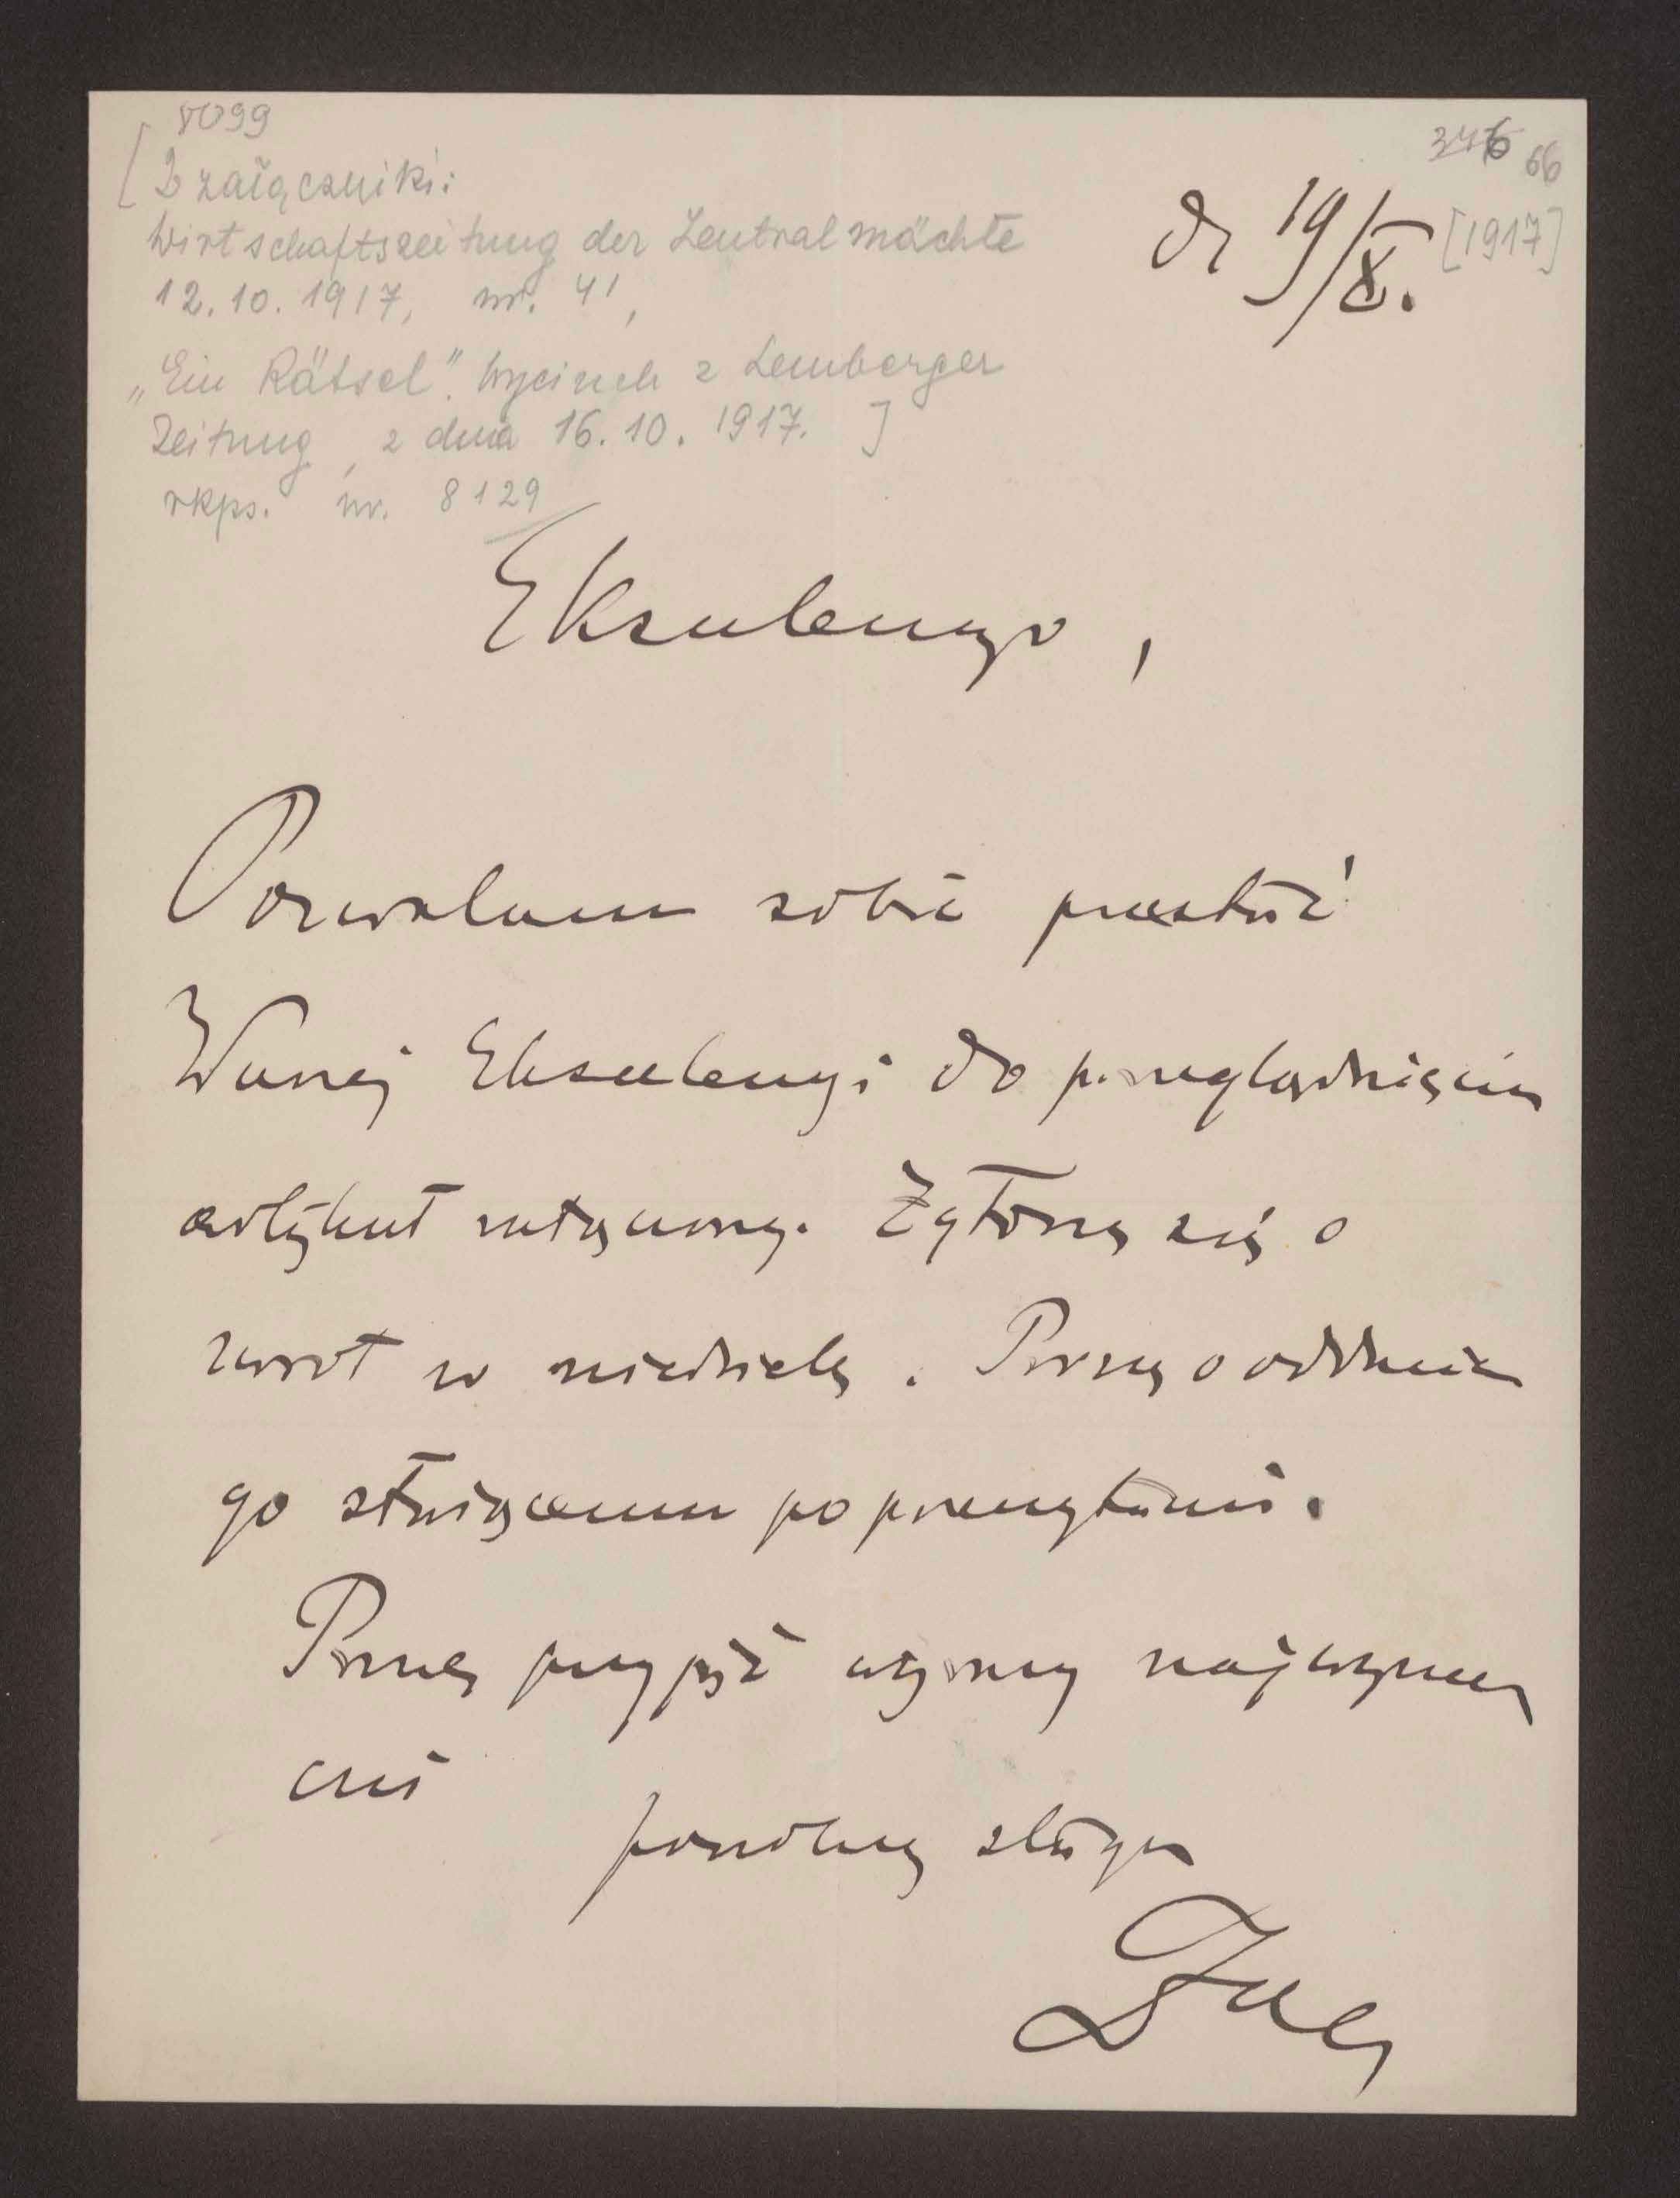 8099
[2 załączniki:
Wirtschaftszeitung der Zentralmächte
12.10.1917, nr. 41,
„Ein Rätsel". wycinek z Lemberger
Zeitung, z dnia 16.10.1917. ]
rkps. nr. 8129
346 66
d. 19/X. [1917]
Ekscelencyo,
Pozwalam sobie przesłać
Waszej Ekscelencyi do przeglądnięcia
artykuł załączony. Zgłoszę się o
zwrot w niedzielę. Proszę o oddanie
go służącemu po przeczytaniu.
Proszę przyjąć wyrazy najwyższej
czci
powolny sługa